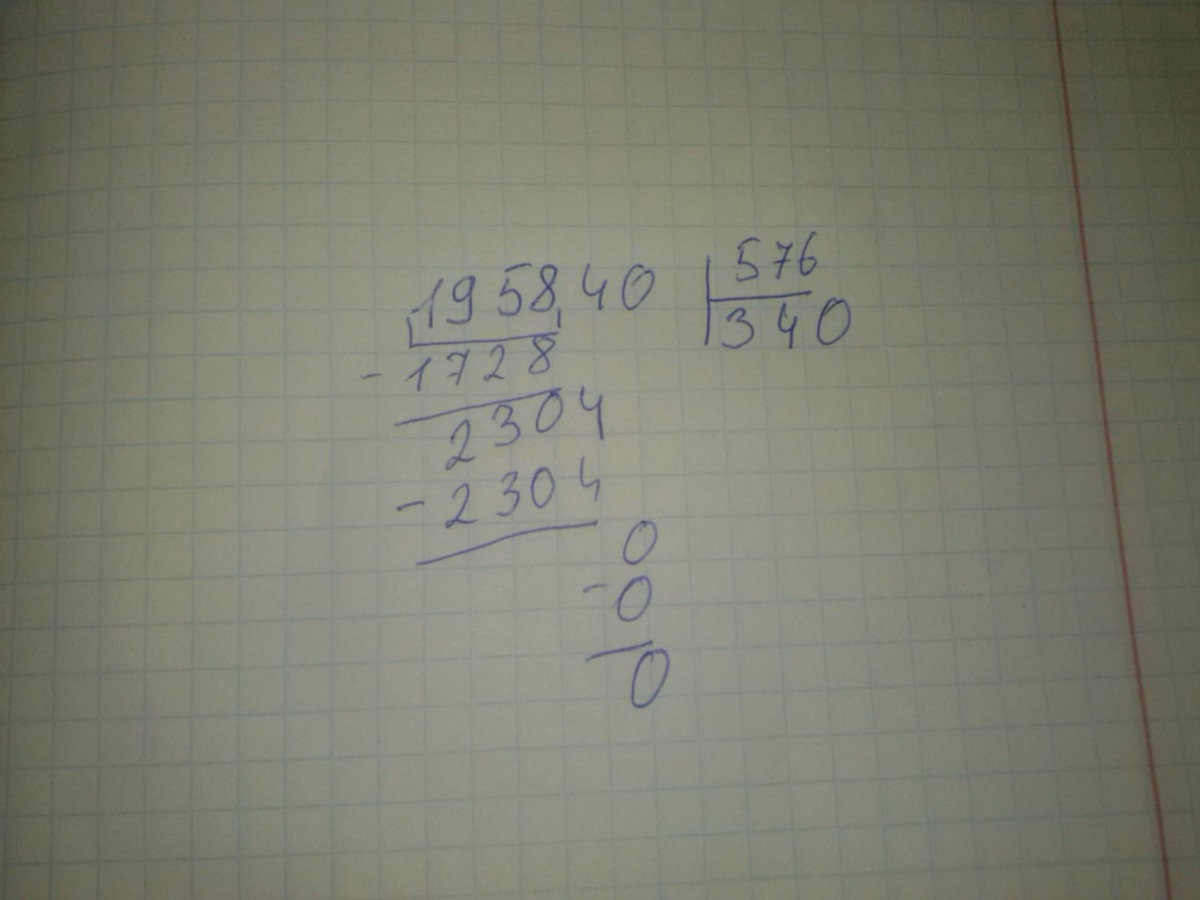 195840 576
340
- 1728
2304
- 2304
0
- 0
0